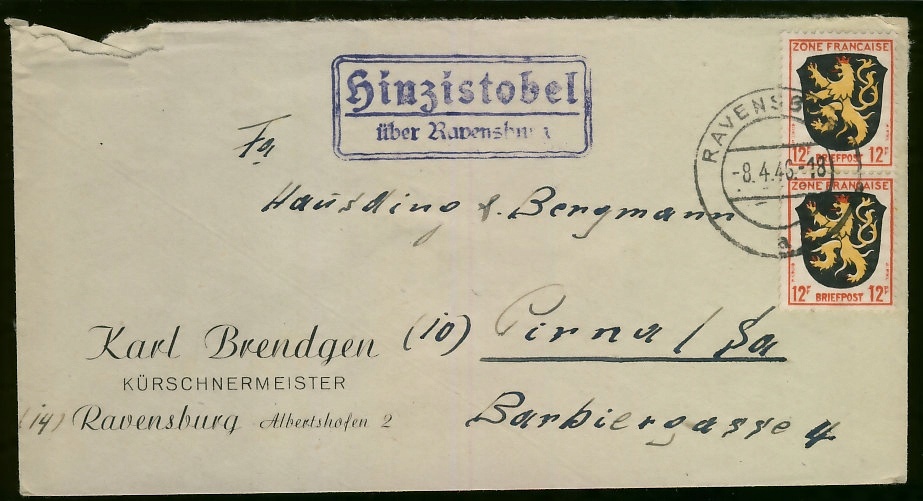 ZONE FRANCAISE
12F BRIEFPOST 12F
ZONE FRANCAISE
12F BRIEFPOST 12F
Hinzistobel
über Ravensburg
RAVENSB
-8.4.46.-18
a
Fa
Hausding & Bergmann
(10) Pirna / Sa
Barbiergasse 4
Karl Brendgen
KÜRSCHNERMEISTER
(14) Ravensburg Albertshofen 2